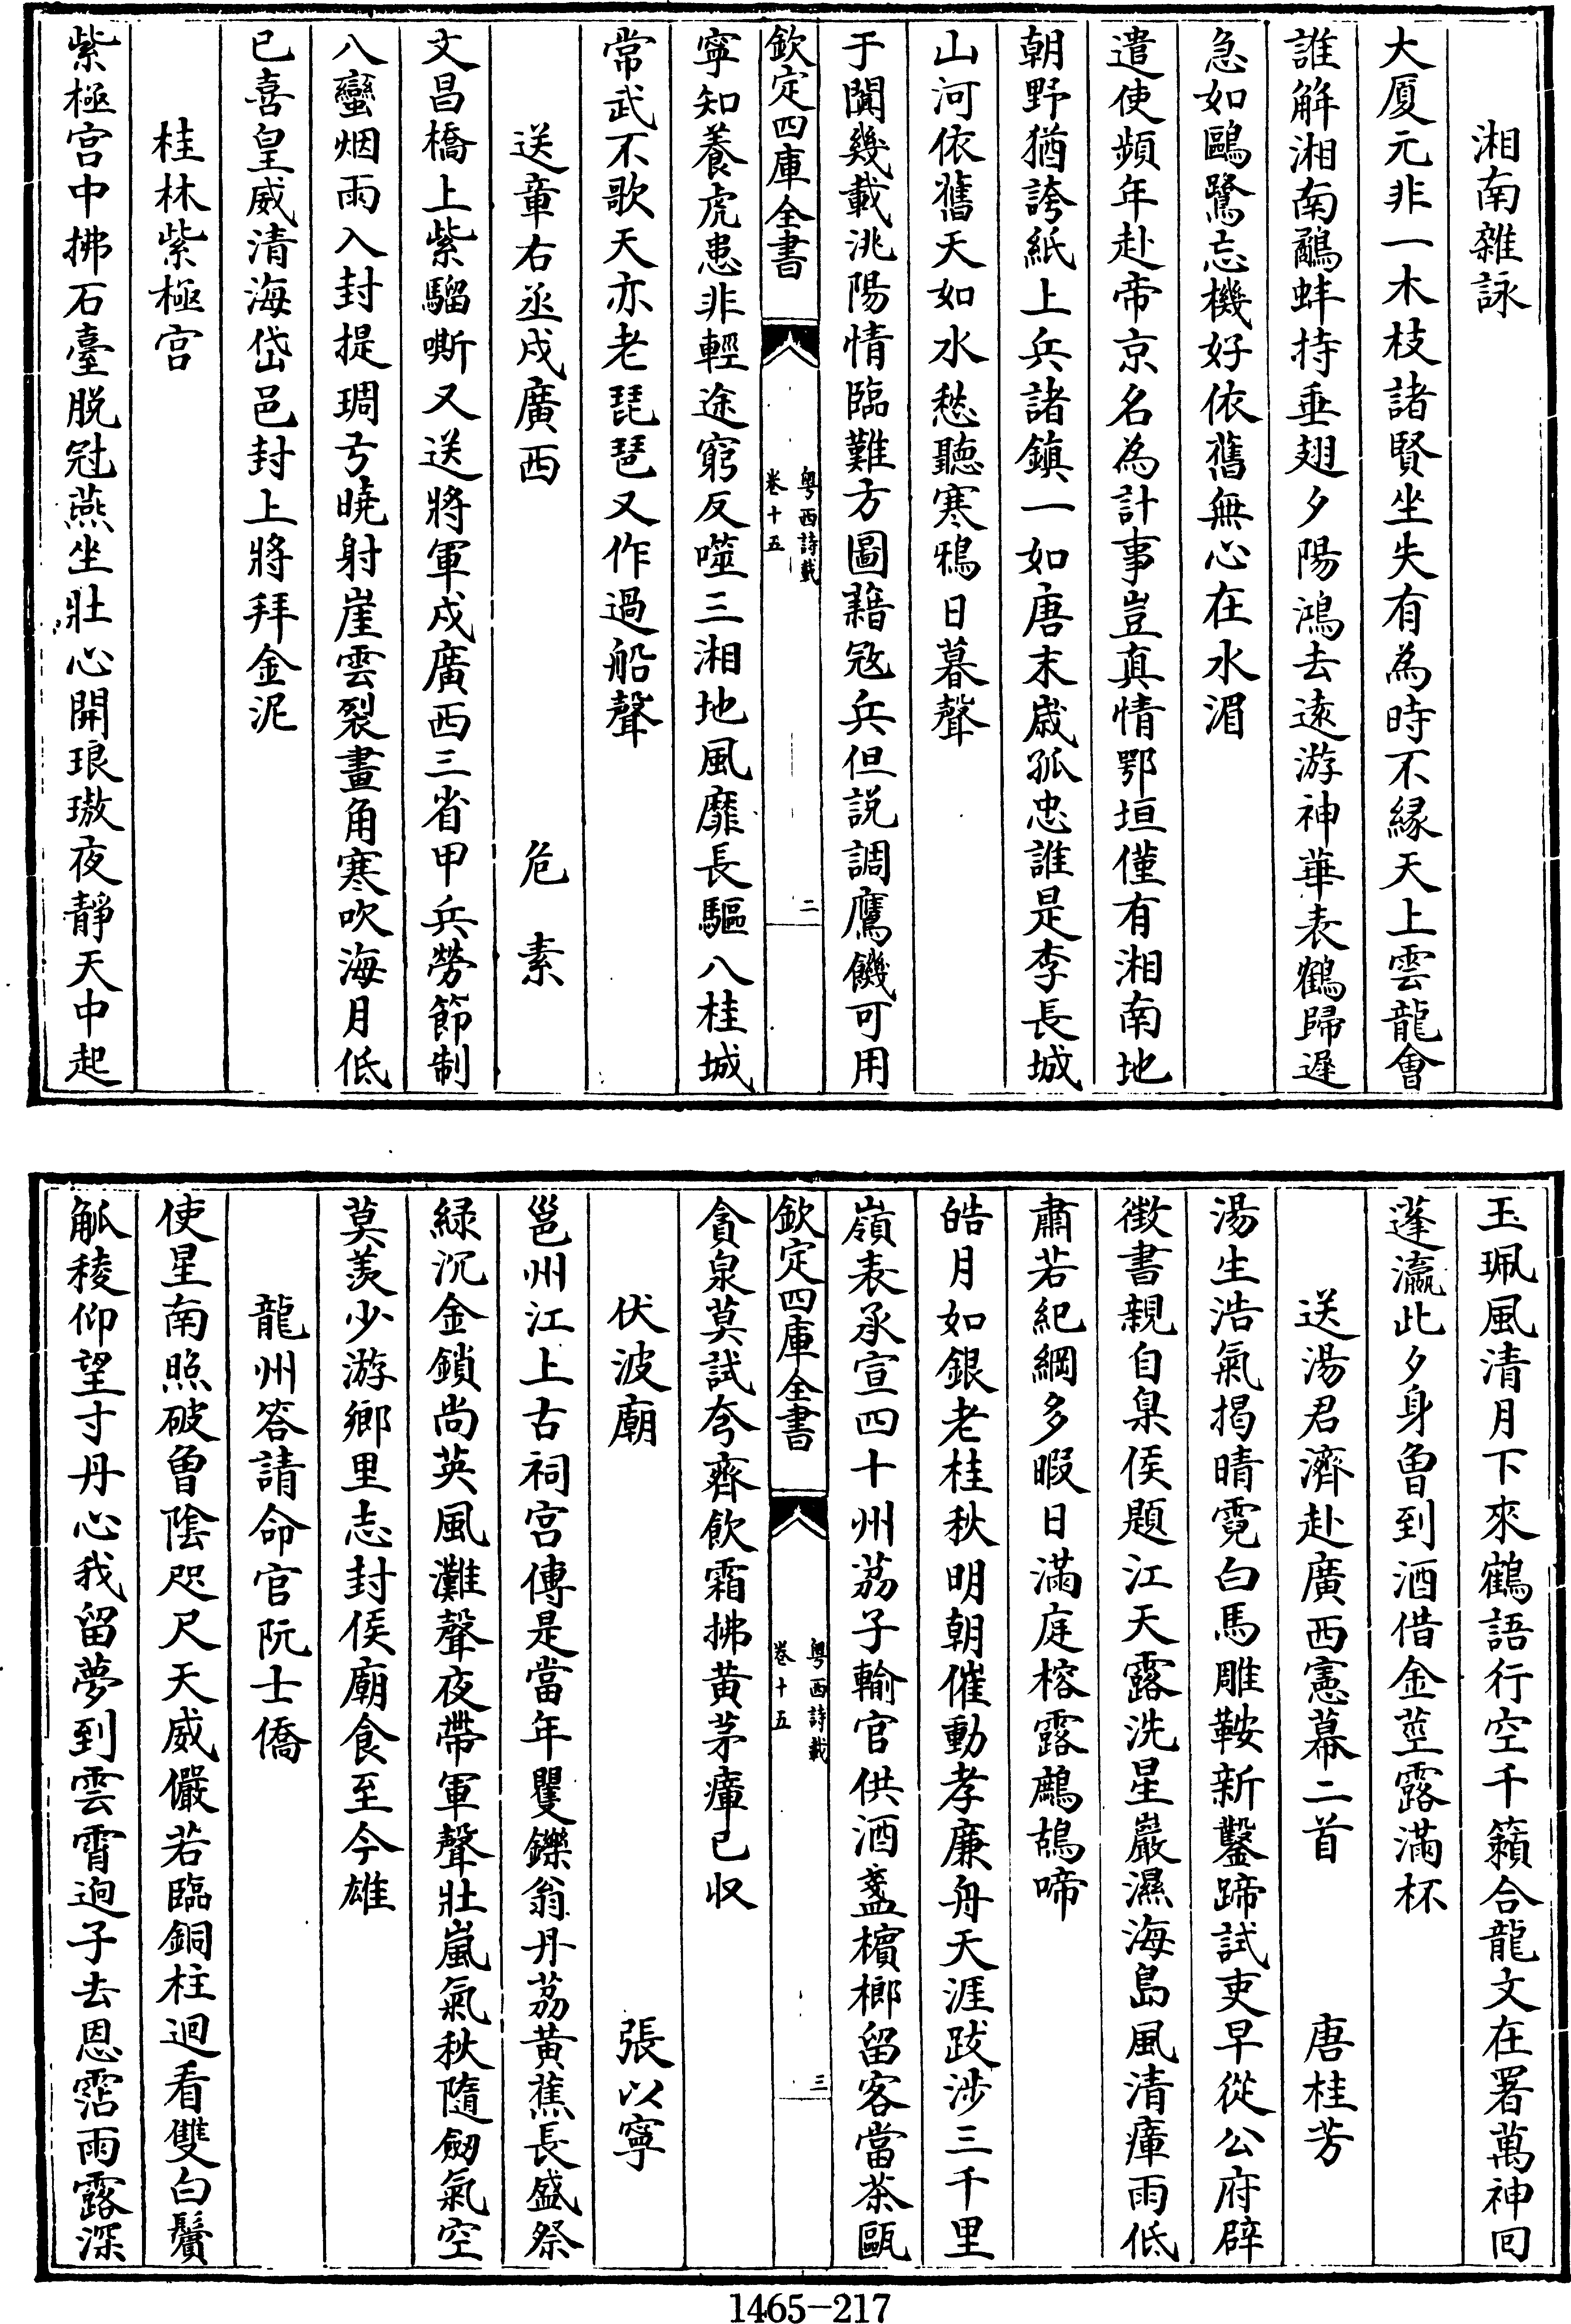 湘南雜詠
大厦元非一木枝諸賢坐失有為時不緣天上雲龍會
誰解湘南鷸蚌持垂翅夕陽鴻去遠游神華表鶴歸遲
急如鷗鷺忘機好依舊無心在水湄
遣使頻年赴帝京名為計事豈真情鄂垣僅有湘南地
朝野猶誇紙上兵諸鎮一如唐末歲孤忠誰是李長城
山河依舊天如水愁聽寒鴉日暮聲
于闐幾載洮陽情臨難方圖籍宼兵但說調鷹饑可用
欽定四庫全書
粤西詩載
卷十五
二
寧知養虎患非輕途窮反噬三湘地風靡長驅八桂城
常武不歌天亦老琵琶又作過船聲
送章右丞戍廣西
危素
文昌橋上紫騮嘶又送將軍戍廣西三省甲兵勞節制
八蠻烟雨入封提琱弓曉射崖雲裂畫角寒吹海月低
已喜皇威清海岱邑封上將拜金泥
桂林紫極宫
紫極宫中拂石臺脱冠燕坐壯心開琅璈夜靜天中起
玉珮風清月下來鶴語行空千籟合龍文在署萬神回
蓬瀛此夕身曾到酒借金莖露滿杯
送湯君濟赴廣西憲幕二首
唐桂芳
湯生浩氣揭晴霓白馬雕鞍新鑿蹄試吏早從公府辟
徵書親自臬侯題江天露洗星巖濕海島風清瘴雨低
肅若紀綱多暇日滿庭榕露鷓鴣啼
皓月如銀老桂秋明朝催動孝廉舟天涯跋涉三千里
嶺表承宣四十州荔子輸官供酒盞檳榔留客當茶甌
欽定四庫全書
粤西詩載
卷十五
三
貪泉莫試夸齊飲霜拂黄茅瘴已収
伏波廟
張以寧
邕州江上古祠宫傳是當年矍鑠翁丹荔黄蕉長盛祭
綠沉金鎖尚英風灘聲夜帶軍聲壯嵐氣秋隨劒氣空
莫羨少游鄉里志封侯廟食至今雄
龍州答請命官阮士僑
使星南照破曾陰咫尺天威儼若臨銅柱迴看雙白鬢
觚稜仰望寸丹心我留夢到雲霄迥子去恩霑雨露深
1465-217